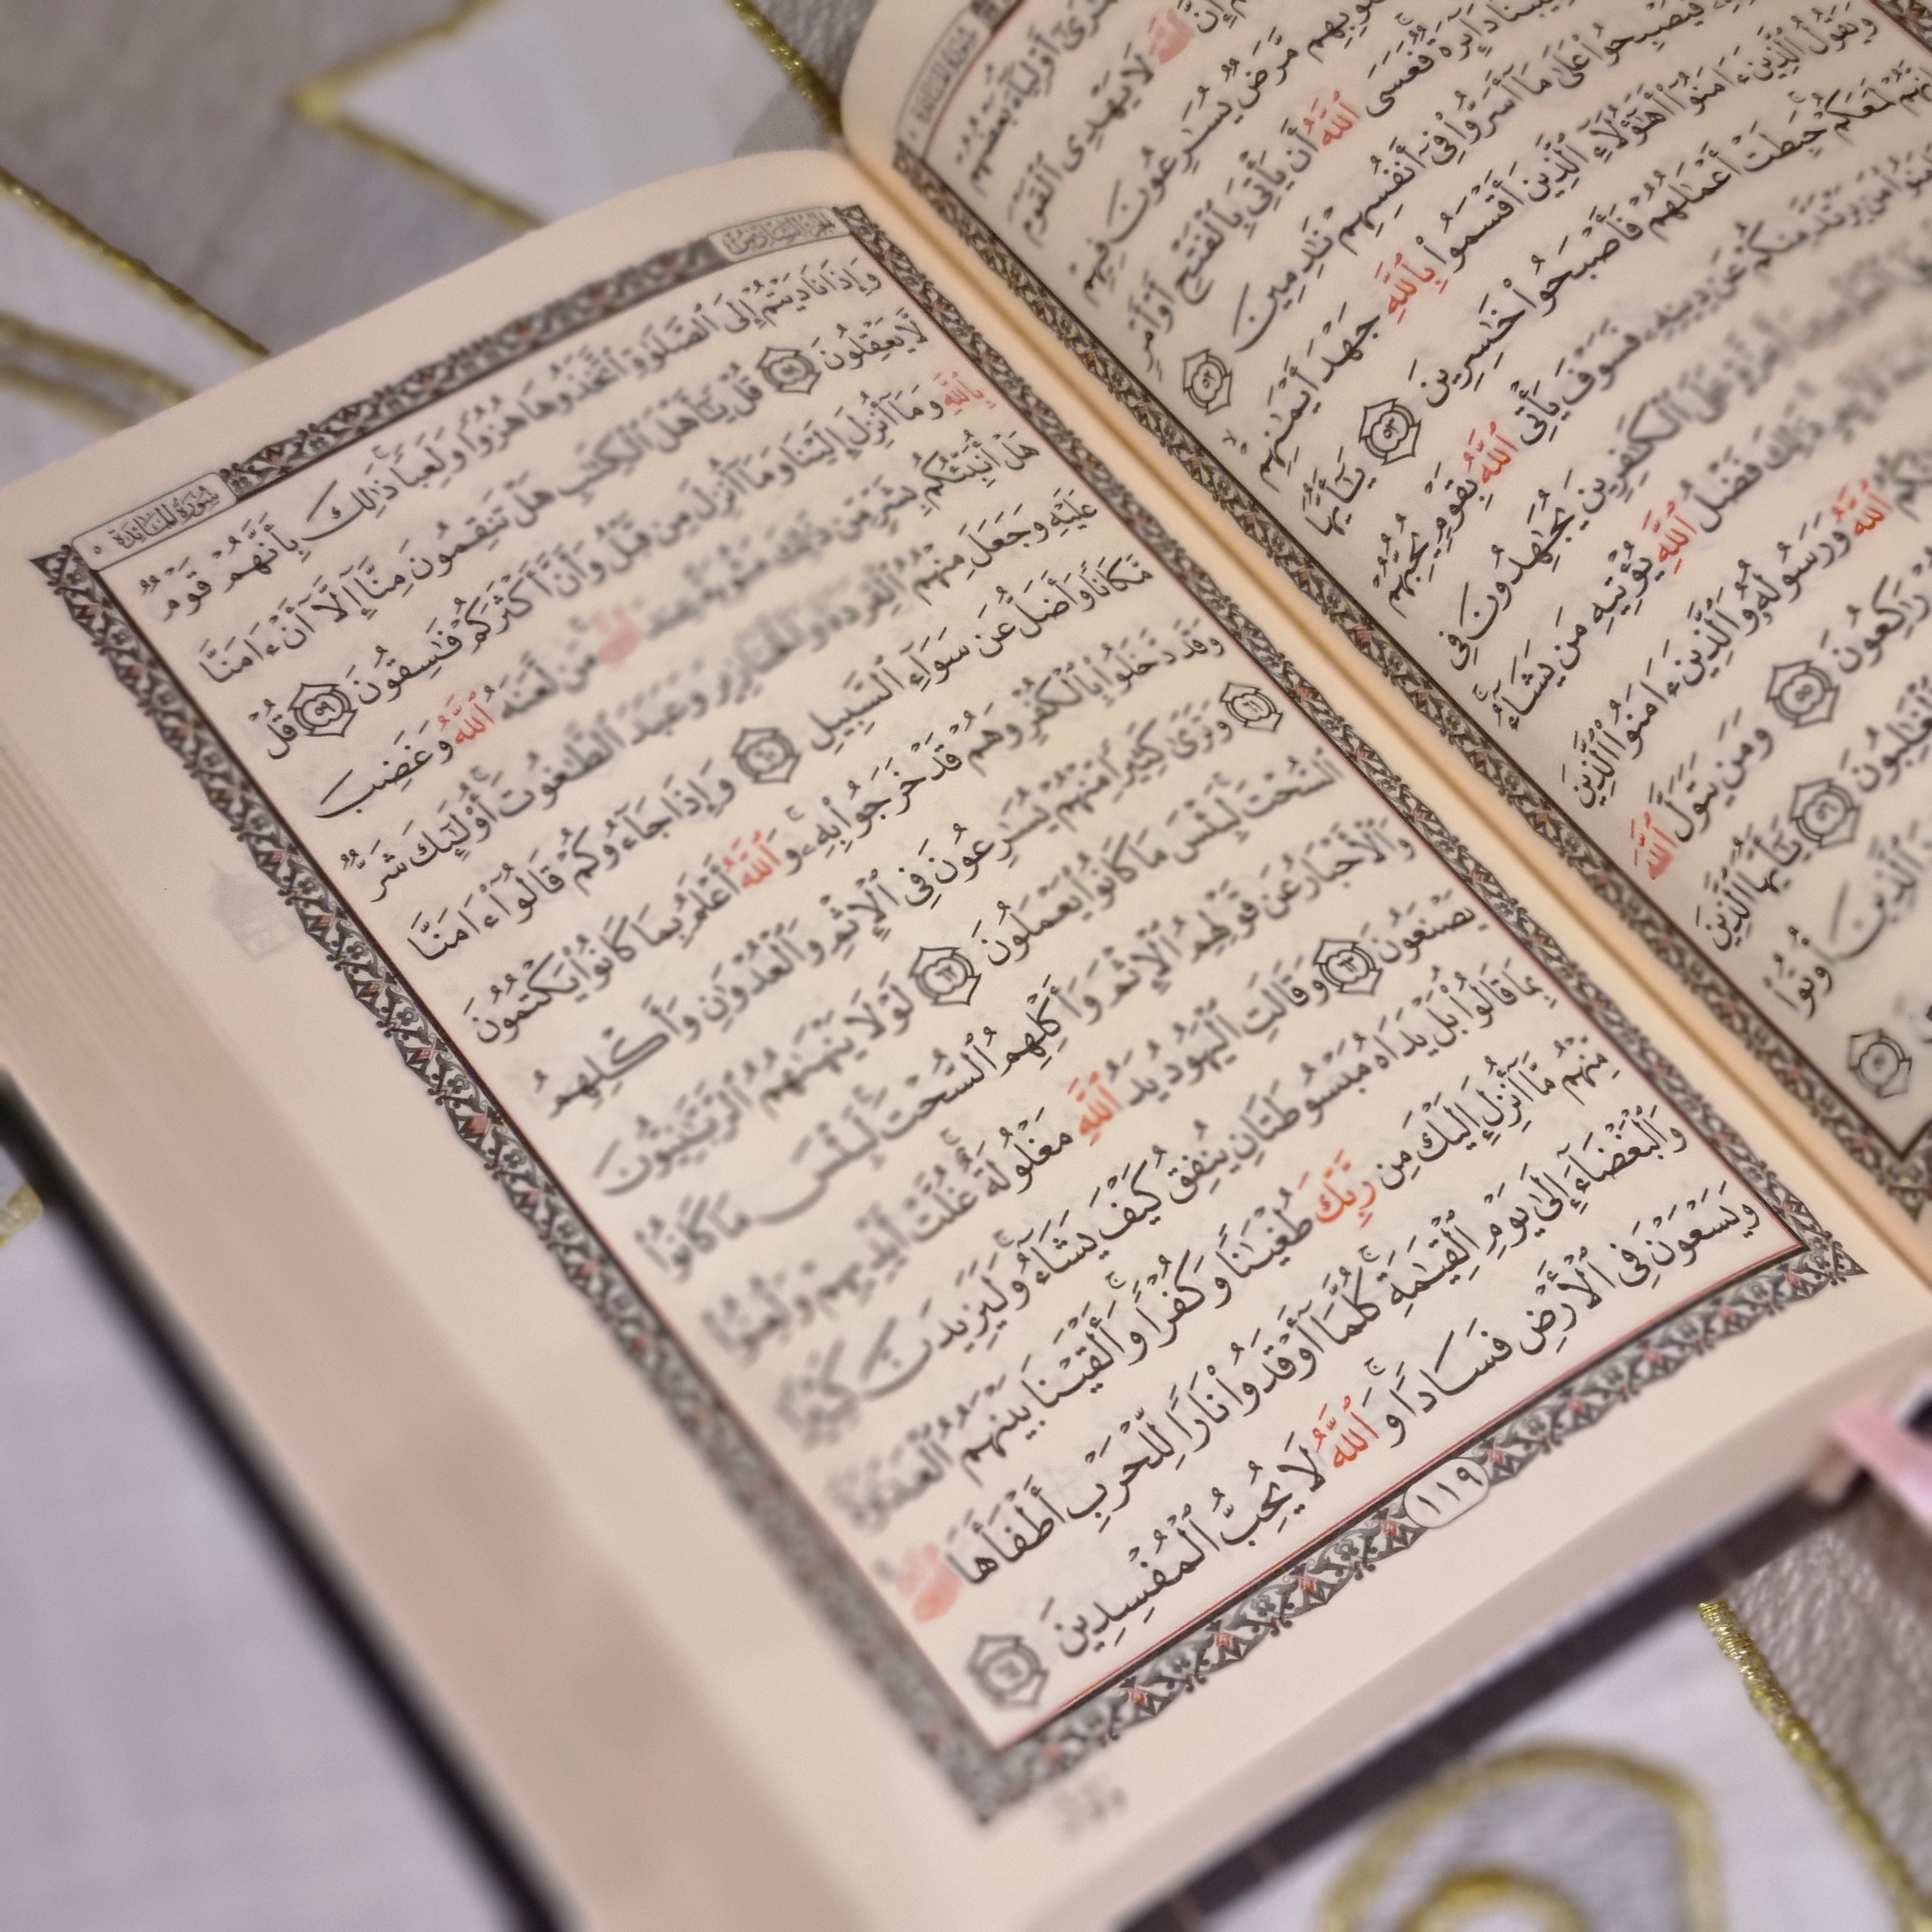 أَوْلِيَآءَ بَعْضُهُمْ
ٱللَّهَ لَا يَهْدِى ٱلْقَوْمَ
مَّرَضٌ يُسَٰرِعُونَ فِيهِمْ
دَآئِرَةٌ فَعَسَى ٱللَّهُ أَن يَأْتِىَ بِٱلْفَتْحِ أَوْ أَمْرٍ
فَيُصْبِحُوا۟ عَلَىٰ مَآ أَسَرُّوا۟ فِىٓ أَنفُسِهِمْ نَٰدِمِينَ ٥٢
وَيَقُولُ ٱلَّذِينَ ءَامَنُوٓا۟ أَهَٰٓؤُلَآءِ ٱلَّذِينَ أَقْسَمُوا۟ بِٱللَّهِ جَهْدَ أَيْمَٰنِهِمْ
لَمَعَكُمْ حَبِطَتْ أَعْمَٰلُهُمْ فَأَصْبَحُوا۟ خَٰسِرِينَ ٥٣ يَٰٓأَيُّهَا
مَن يَرْتَدَّ مِنكُمْ عَن دِينِهِۦ فَسَوْفَ يَأْتِى ٱللَّهُ بِقَوْمٍ يُحِبُّهُمْ
عَلَى ٱلْكَٰفِرِينَ يُجَٰهِدُونَ فِى
ذَٰلِكَ فَضْلُ ٱللَّهِ يُؤْتِيهِ مَن يَشَآءُ
ٱللَّهُ وَرَسُولُهُۥ وَٱلَّذِينَ ءَامَنُوا۟ ٱلَّذِينَ
رَٰكِعُونَ ٥٥ وَمَن يَتَوَلَّ ٱللَّهَ
ٱلْغَٰلِبُونَ ٥٦ يَٰٓأَيُّهَا ٱلَّذِينَ
ٱلَّذِينَ أُوتُوا۟
الجزء السادس ٦
سورة المائدة ٥
وَإِذَا نَادَيْتُمْ إِلَى ٱلصَّلَوٰةِ ٱتَّخَذُوهَا هُزُوًا وَلَعِبًا ۚ ذَٰلِكَ بِأَنَّهُمْ قَوْمٌ
لَّا يَعْقِلُونَ ٥٨ قُلْ يَٰٓأَهْلَ ٱلْكِتَٰبِ هَلْ تَنقِمُونَ مِنَّآ إِلَّآ أَنْ ءَامَنَّا
بِٱللَّهِ وَمَآ أُنزِلَ إِلَيْنَا وَمَآ أُنزِلَ مِن قَبْلُ وَأَنَّ أَكْثَرَكُمْ فَٰسِقُونَ ٥٩ قُلْ
هَلْ أُنَبِّئُكُم بِشَرٍّ مِّن ذَٰلِكَ مَثُوبَةً عِندَ ٱللَّهِ ۚ مَن لَّعَنَهُ ٱللَّهُ وَغَضِبَ
عَلَيْهِ وَجَعَلَ مِنْهُمُ ٱلْقِرَدَةَ وَٱلْخَنَازِيرَ وَعَبَدَ ٱلطَّٰغُوتَ ۚ أُو۟لَٰٓئِكَ شَرٌّ
مَّكَانًا وَأَضَلُّ عَن سَوَآءِ ٱلسَّبِيلِ ٦٠ وَإِذَا جَآءُوكُمْ قَالُوٓا۟ ءَامَنَّا
وَقَد دَّخَلُوا۟ بِٱلْكُفْرِ وَهُمْ قَدْ خَرَجُوا۟ بِهِۦ ۚ وَٱللَّهُ أَعْلَمُ بِمَا كَانُوا۟ يَكْتُمُونَ
٦١ وَتَرَىٰ كَثِيرًا مِّنْهُمْ يُسَٰرِعُونَ فِى ٱلْإِثْمِ وَٱلْعُدْوَٰنِ وَأَكْلِهِمُ
ٱلسُّحْتَ ۚ لَبِئْسَ مَا كَانُوا۟ يَعْمَلُونَ ٦٢ لَوْلَا يَنْهَىٰهُمُ ٱلرَّبَّٰنِيُّونَ
وَٱلْأَحْبَارُ عَن قَوْلِهِمُ ٱلْإِثْمَ وَأَكْلِهِمُ ٱلسُّحْتَ ۚ لَبِئْسَ مَا كَانُوا۟
يَصْنَعُونَ ٦٣ وَقَالَتِ ٱلْيَهُودُ يَدُ ٱللَّهِ مَغْلُولَةٌ ۚ غُلَّتْ أَيْدِيهِمْ وَلُعِنُوا۟
بِمَا قَالُوا۟ ۘ بَلْ يَدَاهُ مَبْسُوطَتَانِ يُنفِقُ كَيْفَ يَشَآءُ ۚ وَلَيَزِيدَنَّ كَثِيرًا
مِّنْهُم مَّآ أُنزِلَ إِلَيْكَ مِن رَّبِّكَ طُغْيَٰنًا وَكُفْرًا ۚ وَأَلْقَيْنَا بَيْنَهُمُ ٱلْعَدَٰوَةَ
وَٱلْبَغْضَآءَ إِلَىٰ يَوْمِ ٱلْقِيَٰمَةِ ۚ كُلَّمَآ أَوْقَدُوا۟ نَارًا لِّلْحَرْبِ أَطْفَأَهَا ٱللَّهُ
وَيَسْعَوْنَ فِى ٱلْأَرْضِ فَسَادًا ۚ وَٱللَّهُ لَا يُحِبُّ ٱلْمُفْسِدِينَ ٦٤
١١٩